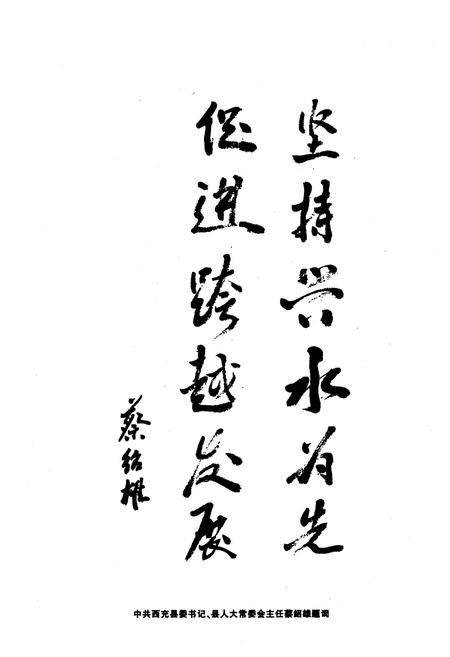 坚持兴水为先
促进跨越发展
蔡绍雄
中共西充县委书记、县人大常委会主任蔡绍雄题词